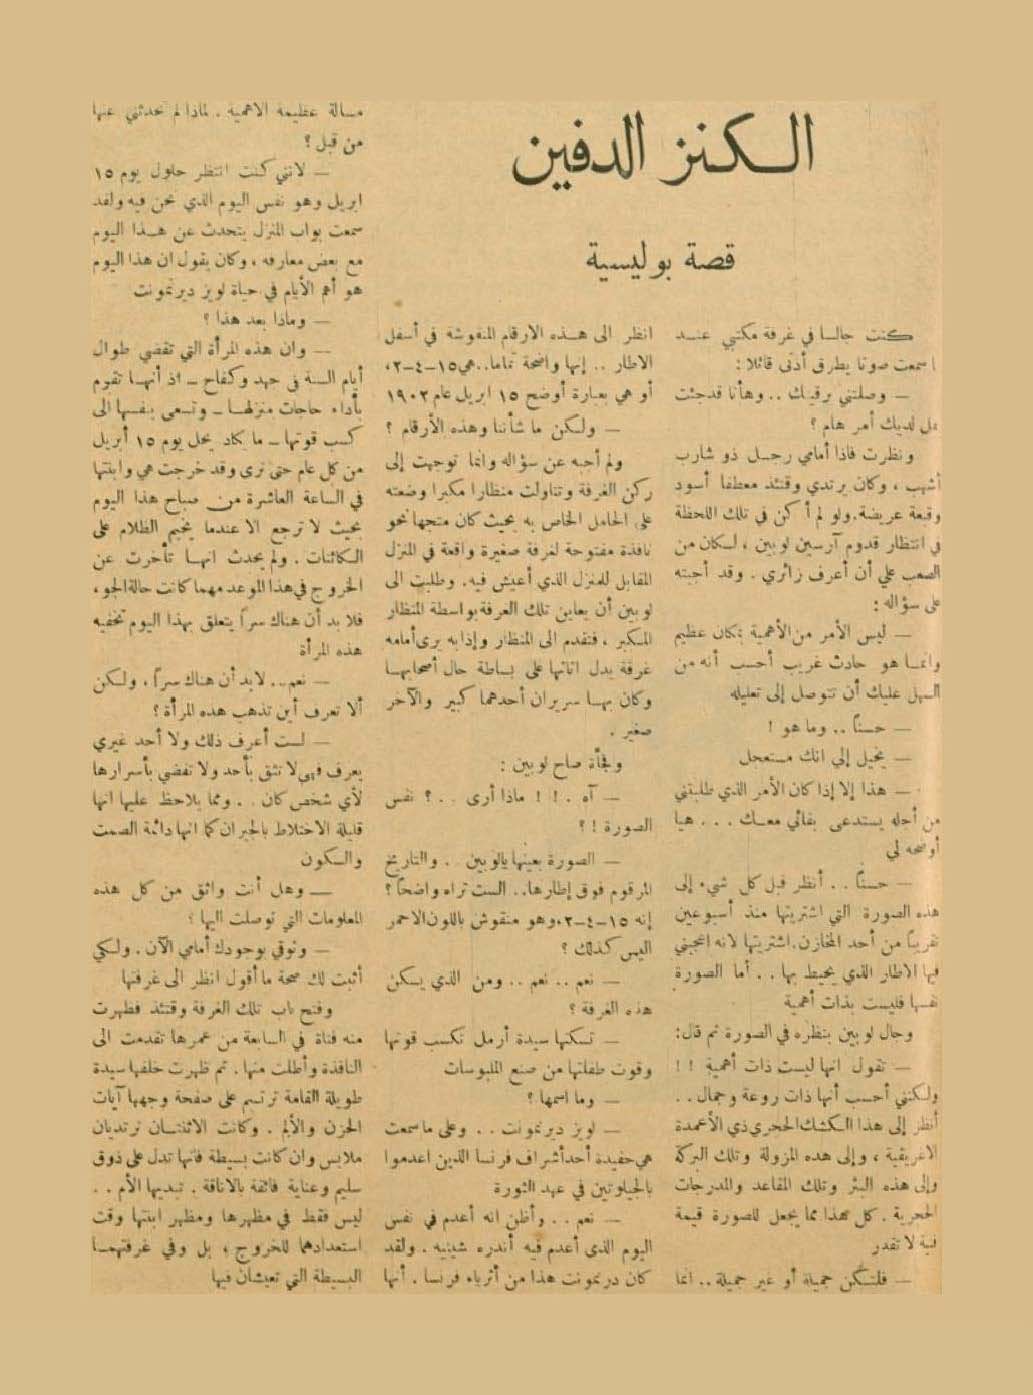 الكنز الدفين
قصة بوليسية
كنت جالسا في غرفة مكتبي عند
سمعت صوتا يطرق أذني قائلا :
— وصلتني برقيتك .. وهأنا قد جئت
هل لديك أمر هام ؟
ونظرت فاذا أمامي رجل ذو شارب
أشهب ، وكان يرتدي وقتئذ معطفا أسود
وقبعة عريضة. ولو لم أكن في تلك اللحظة
في انتظار قدوم آرسين لوبين ، لكان من
الصعب علي أن أعرف زائري . وقد أجبته
على سؤاله :
— ليس الأمر من الأهمية بمكان عظيم
وانما هو حادث غريب أحسب أنه من
السهل عليك أن تتوصل إلى تعليله
— حسناً .. وما هو !
— يخيل إلي انك مستعجل
— هذا إلا إذا كان الأمر الذي طلبتني
من أجله يستدعى بقائي معك ... هيا
أوضحه لي
— حسناً .. أنظر قبل كل شيء إلى
هذه الصورة التي اشتريتها منذ أسبوعين
تقريباً من أحد المخازن. اشتريتها لانه اعجبني
فيها الاطار الذي يحيط بها .. أما الصورة
نفسها فليست بذات أهمية
وجال لوبين بنظره في الصورة ثم قال:
— تقول انها ليست ذات أهمية ! !
ولكنني أحسب أنها ذات روعة وجمال ..
أنظر إلى هذا الكشك الحجري ذي الأعمدة
الاغريقية ، وإلى هذه المزولة وتلك البركة
وإلى هذه البئر وتلك المقاعد والمدرجات
الحجرية . كل هذا مما يجعل للصورة قيمة
فنية لا تقدر
— فلتكن جميلة أو غير جميلة .. انما
انظر الى هذه الارقام المنقوشة في أسفل
الاطار .. إنها واضحة تماما..هي ١٥-٤-٢،
أو هي بعبارة أوضح ١٥ ابريل عام ١٩٠٢
— ولكن ما شأننا وهذه الأرقام ؟
ولم أجبه عن سؤاله وانما توجهت إلى
ركن الغرفة وتناولت منظارا مكبرا وضعته
على الحامل الخاص به بحيث كان متجها نحو
نافذة مفتوحة لغرفة صغيرة واقعة في المنزل
المقابل للمنزل الذي أعيش فيه. وطلبت الى
لوبين أن يعاين تلك الغرفة بواسطة المنظار
المكبر ، فتقدم الى المنظار وإذا به يرى أمامه
غرفة يدل اثاثها على بساطة حال أصحابها
وكان بها سريران أحدهما كبير والآخر
صغير .
وفجأة صاح لوبين :
— آه . ! ! ماذا أرى . . ؟ نفس
الصورة ! ؟
— الصورة بعينها يا لوبين . . والتاريخ
المرقوم فوق إطارها.. الست تراه واضحاً ؟
إنه ١٥-٤-٢، وهو منقوش باللون الاحمر
اليس كذلك ؟
— نعم .. نعم .. ومن الذي يسكن
هذه الغرفة ؟
— تسكنها سيدة أرمل تكسب قوتها
وقوت طفلتها من صنع الملبوسات
— وما اسمها ؟
— لويز ديرنمونت . . وعلى ما سمعت
هي حفيدة أحد أشراف فرنسا الذين اعدموا
بالجيلوتين في عهد الثورة
— نعم . . وأظن انه أعدم في نفس
اليوم الذي أعدم فيه أندره شينيه . ولقد
كان درنمونت هذا من أثرياء فرنسا . أنها
مسألة عظيمة الاهمية . لماذا لم تحدثني عنها
من قبل ؟
— لانني كنت انتظر حلول يوم ١٥
ابريل وهو نفس اليوم الذي نحن فيه ولقد
سمعت بواب المنزل يتحدث عن هذا اليوم
مع بعض معارفه ، وكان يقول ان هذا اليوم
هو أهم الأيام في حياة لويز ديرنمونت
— وماذا بعد هذا ؟
— وان هذه المرأة التي تقضي طوال
أيام السنة في جهد وكفاح — اذ أنها تقوم
بأداء حاجات منزلها — وتسعى بنفسها الى
كسب قوتها — ما يكاد يحل يوم ١٥ أبريل
من كل عام حتى ترى وقد خرجت هي وابنتها
في الساعة العاشرة من صباح هذا اليوم
بحيث لا ترجع الا عندما يخيم الظلام على
الكائنات . ولم يحدث انها تأخرت عن
الخروج في هذا الموعد مهما كانت حالة الجو ،
فلا بد أن هناك سراً يتعلق بهذا اليوم تخفيه
هذه المرأة
— نعم.. لابد أن هناك سراً . ولكن
ألا تعرف أين تذهب هذه المرأة ؟
— لست أعرف ذلك ولا أحد غيري
يعرف فهي لا تثق بأحد ولا تفضي بأسرارها
لأي شخص كان . . ومما يلاحظ عليها انها
قليلة الاختلاط بالجيران كما انها دائمة الصمت
والسكون
— وهل أنت واثق من كل هذه
المعلومات التي توصلت اليها ؟
— وثوقي بوجودك أمامي الآن . ولكي
أثبت لك صحة ما أقول انظر الى غرفتها
وفتح باب تلك الغرفة وقتئذ فظهرت
منه فتاة في السابعة من عمرها تقدمت الى
النافذة وأطلت منها . ثم ظهرت خلفها سيدة
طويلة القامة ترتسم على صفحة وجهها آيات
الحزن والألم . وكانت الاثنتان ترتديان
ملابس وان كانت بسيطة فانها تدل على ذوق
سليم وعناية فائقة بالاناقة . تبديها الأم . .
ليس فقط في مظهرها ومظهر ابنتها وقت
استعدادهما للخروج ؛ بل وفي غرفتهما
البسيطة التي تعيشان فيها